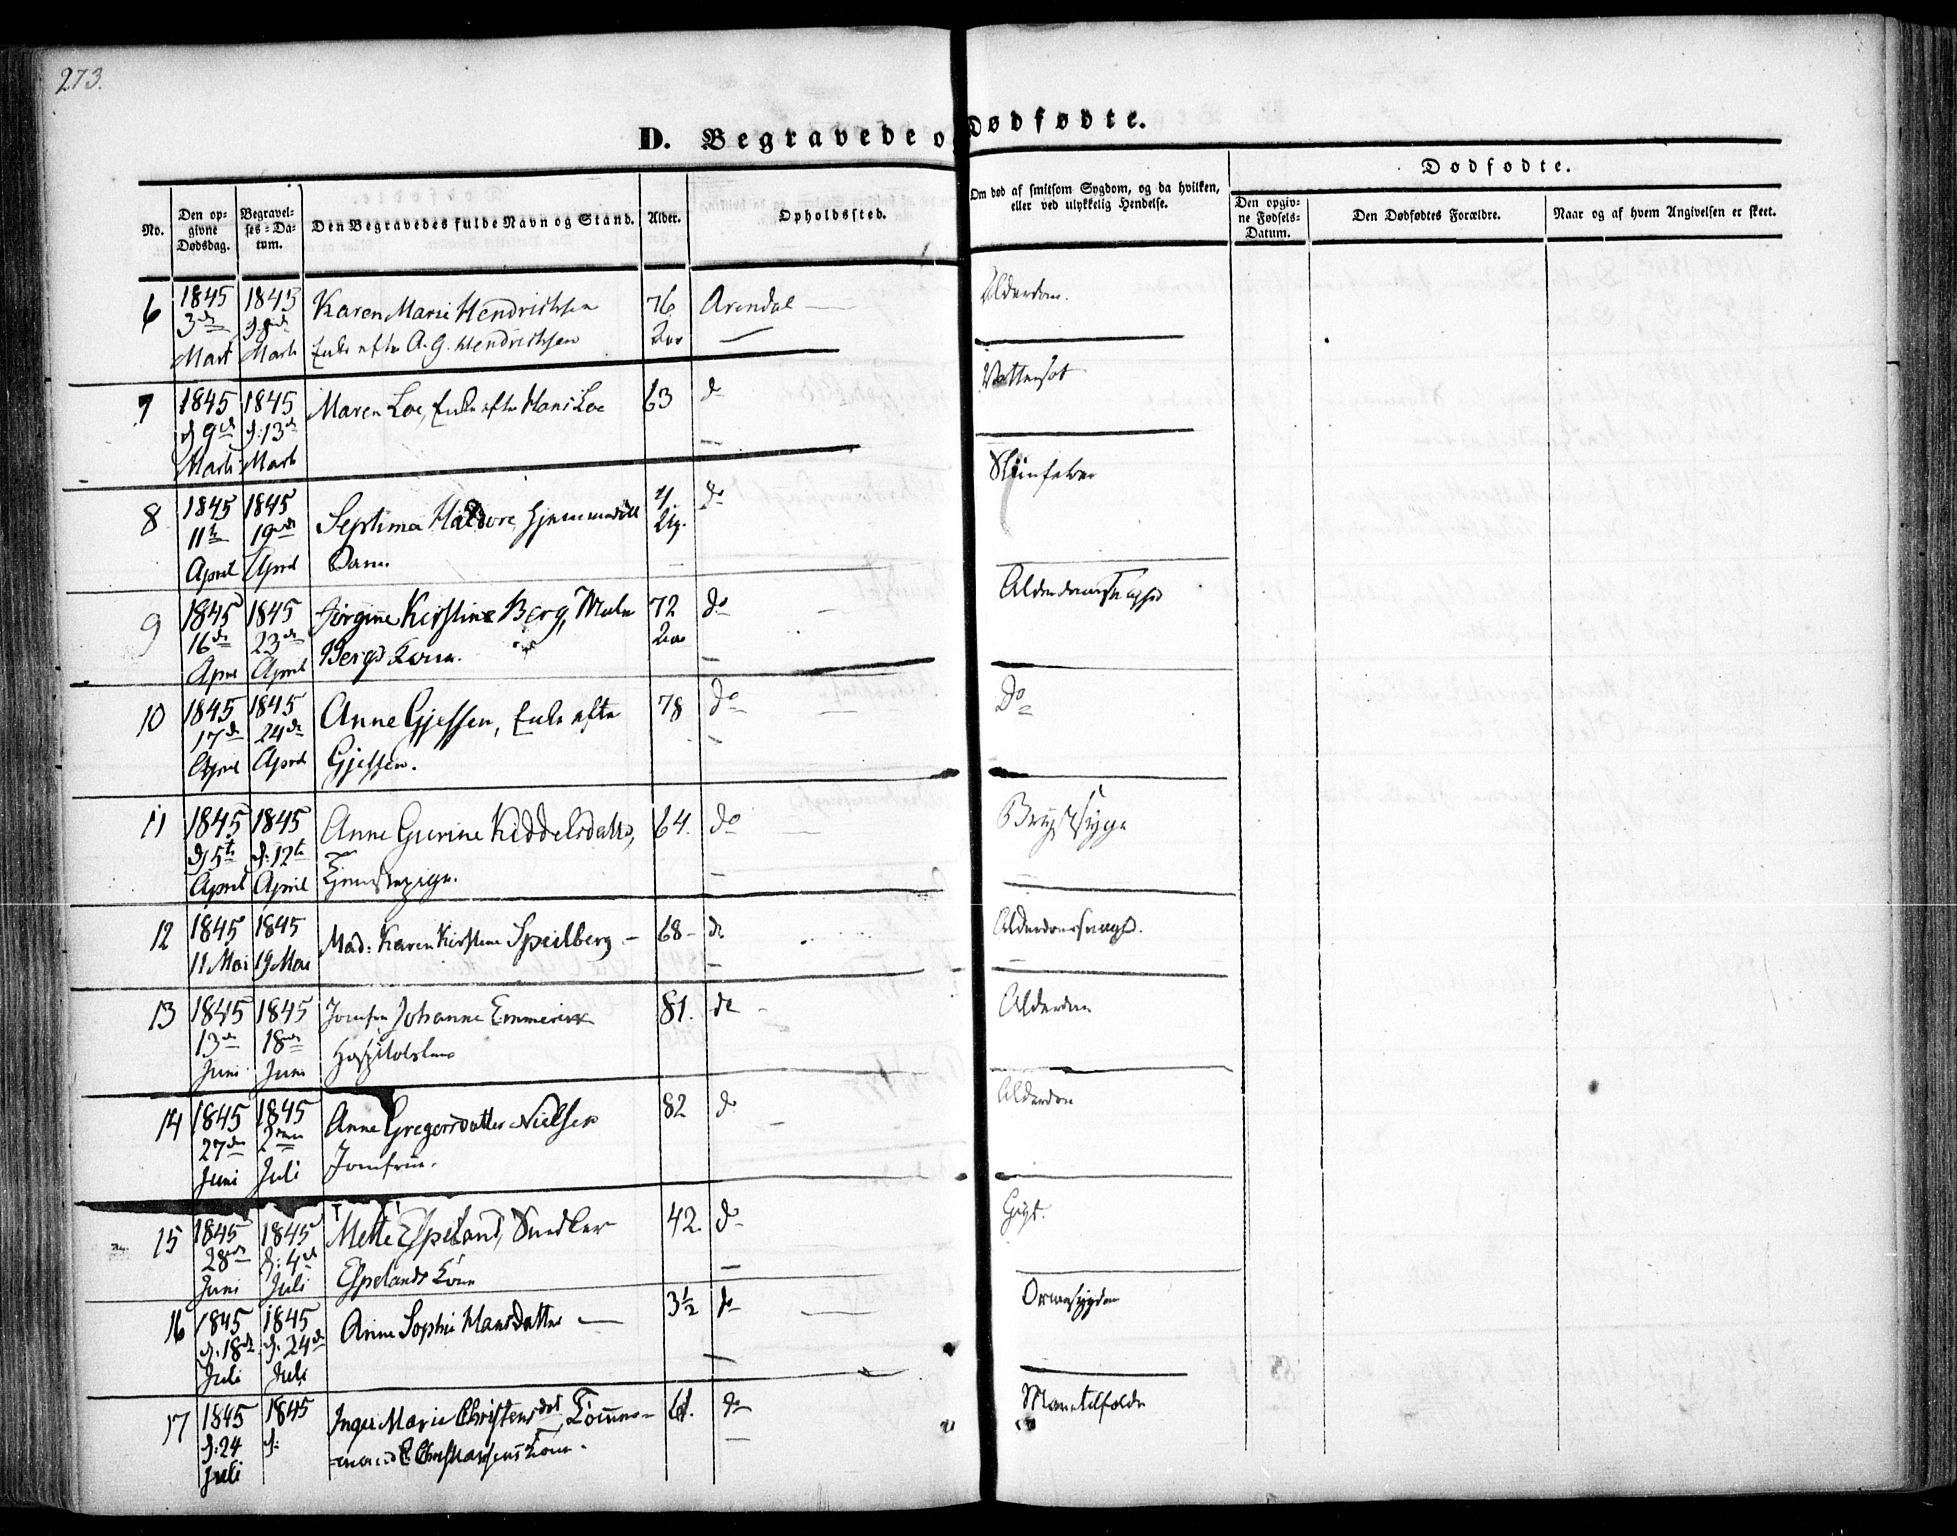 273.
D. Begravede og Dødfødte.
No.
Den op-
givne
Dødsdag.
Begravel-
ses-Da-
tum.
Den Begravedes fulde Navn og Stand.
Alder.
Opholdssted.
Om død af smitsom Sygdom, og da hvilken,
eller ved ulykkelig Hendelse.
Dødfødte.
Den opgiv-
ne Fødsels-
Datum.
Den Dødfødtes Forældre.
Naar og af hvem Angivelsen er skeet.
6 1845 1845 Karen Marie Hendrichsen 76 Arendal Alderdom.
3de
Mart Marti Enke efter A. G. Hendrichsen
7 1845 1845 Maren Loe, Enke efter Hans Loe 63 do Vattersot
d 9de d: 13de
Marti Marti
8 1845 1845 Septima
11te 19de
April April Barn.
9 1845 1845 Jørgine Kirstine Berg, 72 do
16de 23de
April April Bergs Kone.
10 1845 1845 Anne Gjessen, Enke efter 78 do Do
17de 24de
April April Gjessen.
11 1845 1845 Anne Gurine Kiddelsdatter, 64. do Brystsyge
d 5te d: 12te
April April Tjenestepige.
12 1845 1845 Mad: Karen Kirstine Speilberg 68 do Alderdomssvaghed.
11 Mai 19 Mai
13 1845 1845 Jomfru Johanne 81. do Alderdom
13de 18de
Juni Juni Hospitalslem
14 1845 1845 Anne Gregersdatter Nielsen 82 do Alderdom
27de 2den
Juni Juli Jomfrue.
15 1845 1845 Mette Espeland, Snedker 42. do Gigt.
28de d: 4de
Juni Juli Espelands Kone
16 1845 1845 Anne Sophie Hansdatter 3½ do Ormesygdom
d. 18de d. 24de
Juli Juli
17 1845 1845 Inger Marie Christensdat, Tømmer- 61. do
d: 24 d:
Juli mand Kone.